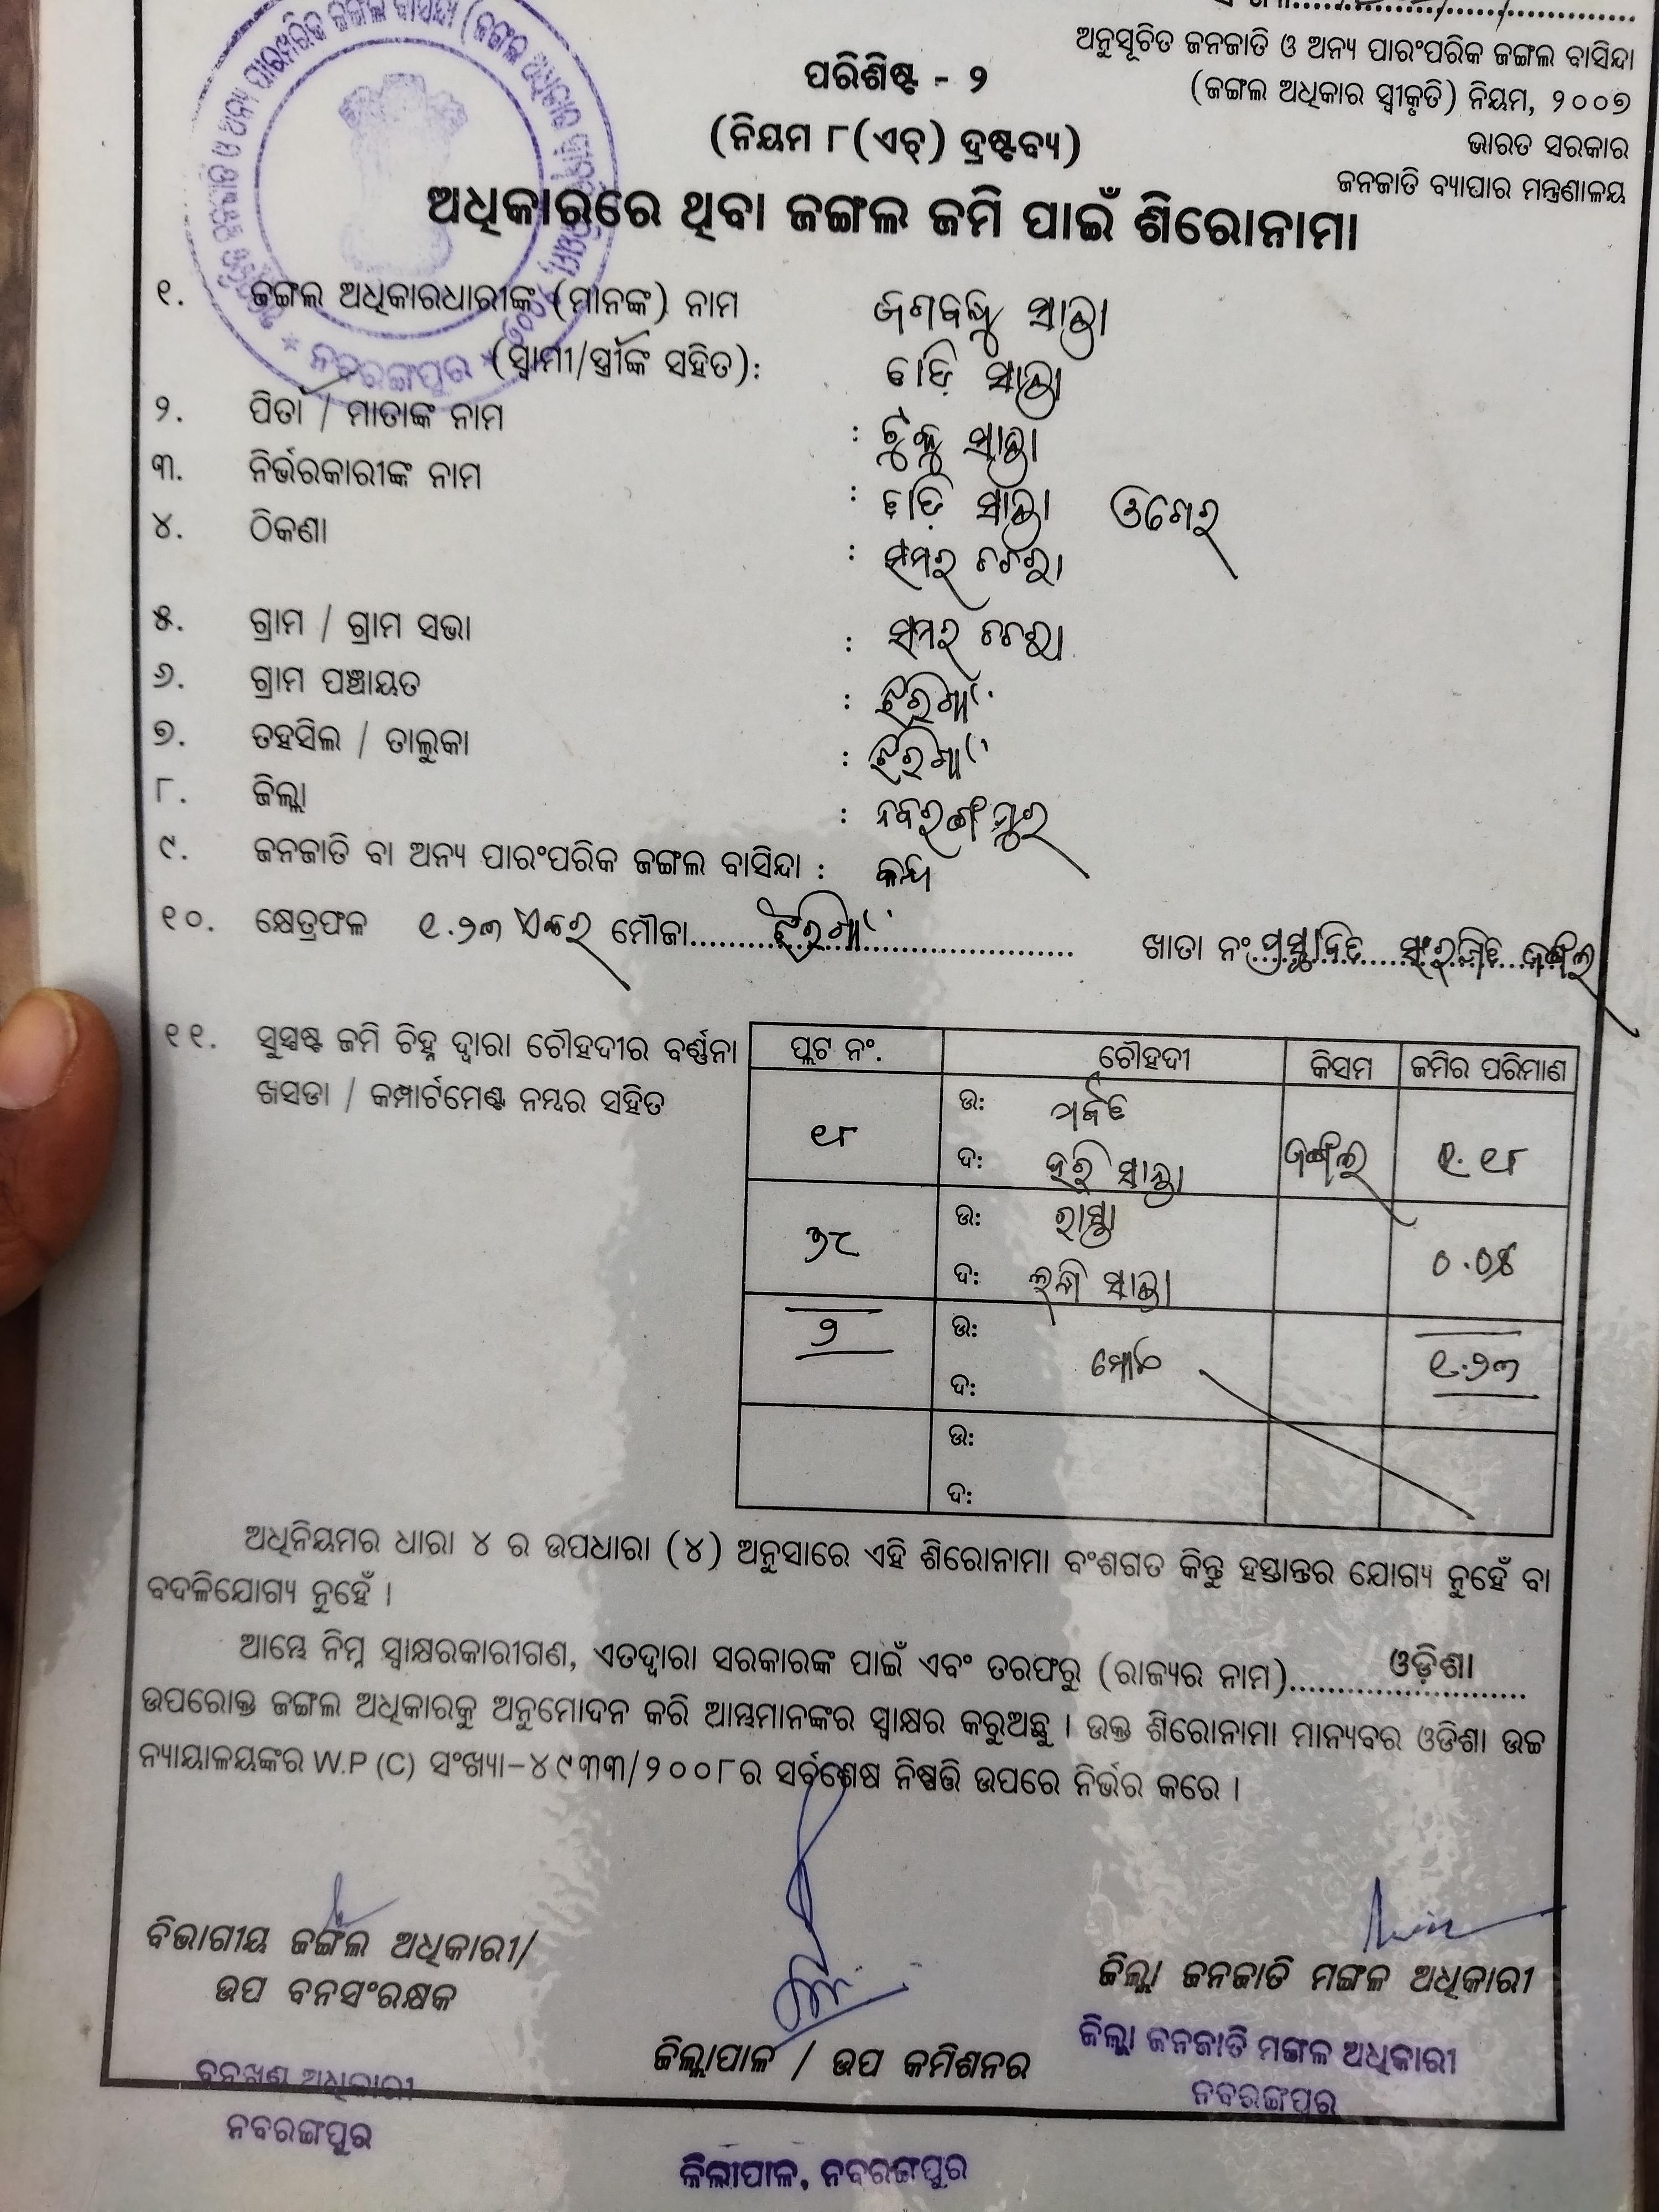 ଅନୁସୂଚିତ ଜନଜାତି ଓ ଅନ୍ୟ ପାରଂପରିକ ଜଙ୍ଗଲ ବାସିନ୍ଦା
(ଜଙ୍ଗଲ ଅଧିକାର ସ୍ୱୀକୃତି) ନିୟମ, ୨୦୦୭
ଭାରତ ସରକାର
ଜନଜାତି ବ୍ୟାପାର ମନ୍ତ୍ରଣାଳୟ
ପରିଶିଷ୍ଟ - ୨
(ନିୟମ ୮(ଏଚ୍) ଦ୍ରଷ୍ଟବ୍ୟ)
ଅଧିକାରରେ ଥିବା ଜଙ୍ଗଲ ଜମି ପାଇଁ ଶିରୋନାମା
ନବରଙ୍ଗପୁର
୧. ଜଙ୍ଗଲ ଅଧିକାରଧାରୀଙ୍କ (ମାନଙ୍କ) ନାମ
(ସ୍ୱାମୀ/ସ୍ତ୍ରୀଙ୍କ ସହିତ):
୨. ପିତା / ମାତାଙ୍କ ନାମ :
୩. ନିର୍ଭରକାରୀଙ୍କ ନାମ :
୪. ଠିକଣା :
୫. ଗ୍ରାମ / ଗ୍ରାମ ସଭା :
୬. ଗ୍ରାମ ପଞ୍ଚାୟତ : ଝରିଗାଁ
୭. ତହସିଲ / ତାଲୁକା : ଝରିଗାଁ
୮. ଜିଲ୍ଲା : ନବରଙ୍ଗପୁର
୯. ଜନଜାତି ବା ଅନ୍ୟ ପାରଂପରିକ ଜଙ୍ଗଲ ବାସିନ୍ଦା : କନ୍ଧ
୧୦. କ୍ଷେତ୍ରଫଳ ୧.୨୩ ଏକର ମୌଜା ଝରିଗାଁ ଖାତା ନଂ ପ୍ରସ୍ତାବିତ ସଂରକ୍ଷିତ ଜଙ୍ଗଲ
୧୧. ସୁସ୍ପଷ୍ଟ ଜମି ଚିହ୍ନ ଦ୍ୱାରା ଚୌହଦୀର ବର୍ଣ୍ଣନା
ଖସଡା / କମ୍ପାର୍ଟମେଣ୍ଟ ନମ୍ବର ସହିତ
ପ୍ଲଟ ନଂ. ଚୌହଦୀ କିସମ ଜମିର ପରିମାଣ
୧୮ ଉ: ଦ: ହରି ଜଙ୍ଗଲ ୧.୧୮
ଉ: ରାସ୍ତା ଦ: ୦.୦୫
୨ ଉ: ଦ: ମୋଟ ୧.୨୩
ଉ:
ଦ:
ଅଧିନିୟମର ଧାରା ୪ ର ଉପଧାରା (୪) ଅନୁସାରେ ଏହି ଶିରୋନାମା ବଂଶଗତ କିନ୍ତୁ ହସ୍ତାନ୍ତର ଯୋଗ୍ୟ ନୁହେଁ ବା
ବଦଳିଯୋଗ୍ୟ ନୁହେଁ ।
ଆମ୍ଭେ ନିମ୍ନ ସ୍ୱାକ୍ଷରକାରୀଗଣ, ଏତଦ୍ୱାରା ସରକାରଙ୍କ ପାଇଁ ଏବଂ ତରଫରୁ (ରାଜ୍ୟର ନାମ) ଓଡ଼ିଶା
ଉପରୋକ୍ତ ଜଙ୍ଗଲ ଅଧିକାରକୁ ଅନୁମୋଦନ କରି ଆମ୍ଭମାନଙ୍କର ସ୍ୱାକ୍ଷର କରୁଅଛୁ । ଉକ୍ତ ଶିରୋନାମା ମାନ୍ୟବର ଓଡିଶା ଉଚ୍ଚ
ନ୍ୟାୟାଳୟଙ୍କର W.P (C) ସଂଖ୍ୟା-୪୯୩୩/୨୦୦୮ର ସର୍ବଶେଷ ନିଷ୍ପତ୍ତି ଉପରେ ନିର୍ଭର କରେ ।
ବିଭାଗୀୟ ଜଙ୍ଗଲ ଅଧିକାରୀ/
ଉପ ବନସଂରକ୍ଷକ
ଜିଲ୍ଲାପାଳ / ଉପ କମିଶନର
ଜିଲ୍ଲା ଜନଜାତି ମଙ୍ଗଳ ଅଧିକାରୀ
ଜିଲ୍ଲା ଜନଜାତି ମଙ୍ଗଳ ଅଧିକାରୀ
ନବରଙ୍ଗପୁର
ବନଖଣ୍ଡ ଅଧିକାରୀ
ନବରଙ୍ଗପୁର
ଜିଲ୍ଲାପାଳ, ନବରଙ୍ଗପୁର